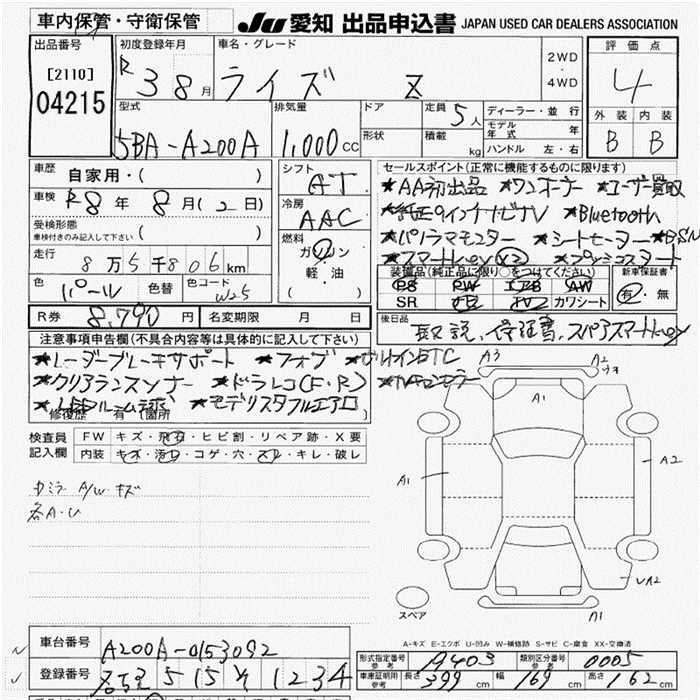 車内保管・守衛保管
JU 愛知 出品申込書 JAPAN USED CAR DEALERS ASSOCIATION
出品番号
[2110]
04215
初度登録年月
R 3 8 月
車名・グレード
ライズ Z
2WD
・
4WD
評価点
4
外装 内装
B B
型式
5BA-A200A
排気量
1,000 cc
ドア
形状
定員 5人
積載 kg
ディーラー・並行
モデル年式 年
ハンドル 左・右
車歴 自家用・( )
車検 R8年 8月(2日)
受検形態
車検付きのみ記入して下さい ( )
走行 8万5千806km
色 パール 色替 色コード W25
R券 8,790 円 名変期限 月 日
シフト
AT
冷房
AAC
燃料
ガソリン
軽・油
( )
セールスポイント(正常に機能するものに限ります)
★AA初出品 ★ワンオーナー ★ユーザー買取
★純正9インチナビTV ★Bluetooth
★パノラマモニター ★シートヒーター ★BSM
★スマートkey(×2) ★プッシュスタート
装備品(純正品に限り○をつけてください)
PS PW エアB AW
SR カワシート
新車保証書
有・無
後日品
取説、保証書、スペアスマートkey
注意事項申告欄(不具合内容等は具体的に記入して下さい)
★レーダーブレーキサポート ★フォグ ★ビルトインETC
★クリアランスソナー ★ドラレコ(F・R)
★LEDルーム球 ★モデリスタフルエアロ
修復歴 有(箇所 )
検査員
記入欄
FW キズ・飛石・ヒビ割・リペア跡・X要
内装 キズ・汚れ・コゲ・穴・スレ・キレ・破レ
カミラ A/W キズ
各A・U
A3
A2
A1
A1
A2
UA2
A1
スペア
A-キズ E-エクボ U-凹み W-補修跡 S-サビ C-腐食 XX-交換済
車台番号 A200A-0153092
登録番号 515 1234
形式指定番号 参考 19403 類別区分番号 参考 0005
車庫証明用 参考 長さ 399 cm 幅 169 cm 高さ 162 cm